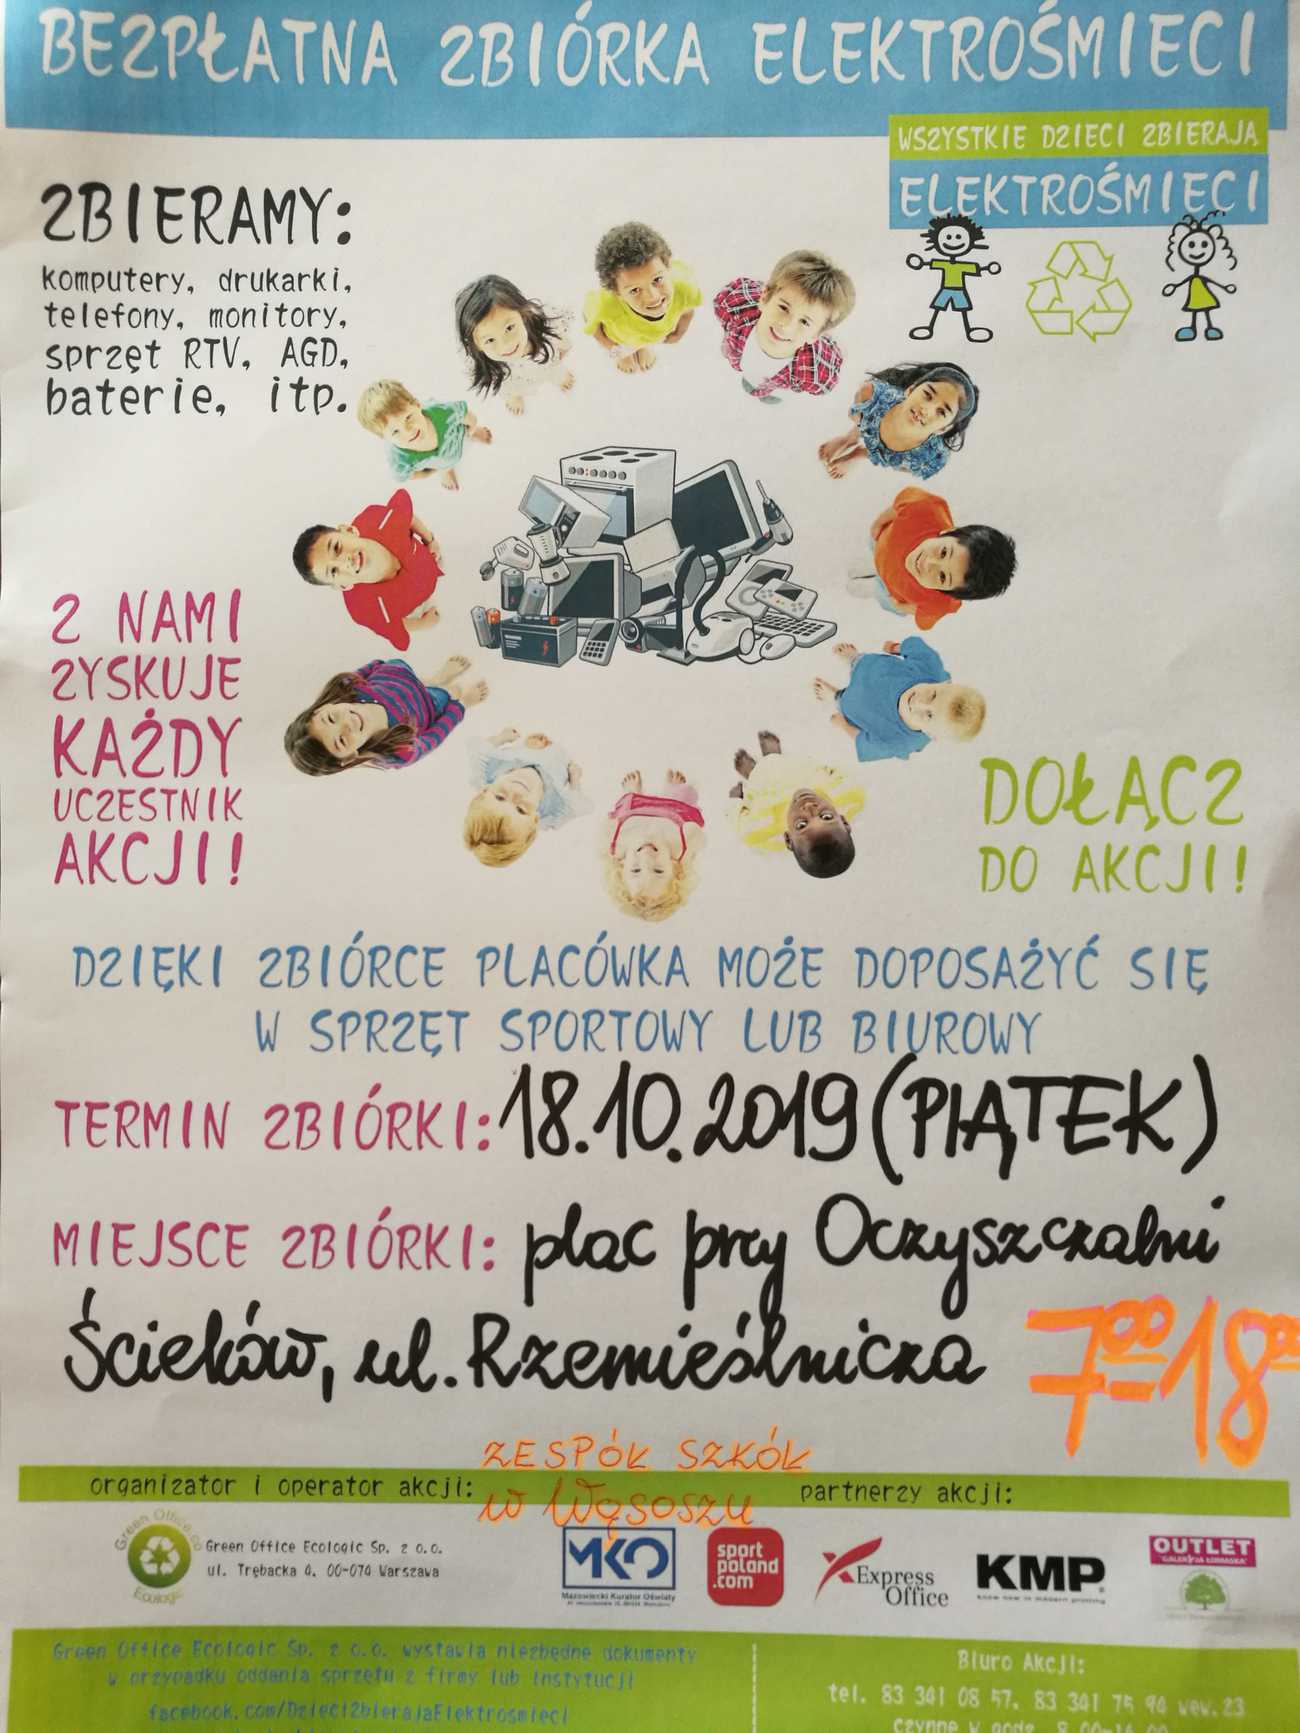 BEZPŁATNA ZBIÓRKA ELEKTROŚMIECI
WSZYSTKIE DZIECI ZBIERAJĄ
ELEKTROŚMIECI
ZBIERAMY:
komputery, drukarki,
telefony, monitory,
sprzęt RTV, AGD,
baterie, itp.
Z NAMI
ZYSKUJE
KAŻDY
UCZESTNIK
AKCJI!
DOŁĄCZ
DO AKCJI!
DZIĘKI ZBIÓRCE PLACÓWKA MOŻE DOPOSAŻYĆ SIĘ
W SPRZĘT SPORTOWY LUB BIUROWY
TERMIN ZBIÓRKI: 18.10.2019 (PIĄTEK)
MIEJSCE ZBIÓRKI: plac przy Oczyszczalni
Ścieków, ul. Rzemieślnicza 7⁰⁰-18⁰⁰
ZESPÓŁ SZKÓŁ
w Wąsoszu
organizator i operator akcji:
partnerzy akcji:
Green Office Ecologic
Green Office Ecologic Sp. z o.o.
ul. Trębacka 4, 00-074 Warszawa
MKO
Mazowiecki Kurator Oświaty
sport
poland
.com
Express
Office
KMP
know how in modern printing
OUTLET
Green Office Ecologic Sp. z o.o. wystawia niezbędne dokumenty
w przypadku oddania sprzętu z firmy lub instytucji
facebook.com/DzieciZbierajaElektrosmieci
Biuro Akcji:
tel. 83 341 08 57, 83 341 75 94 wew.23
czynne w godz.